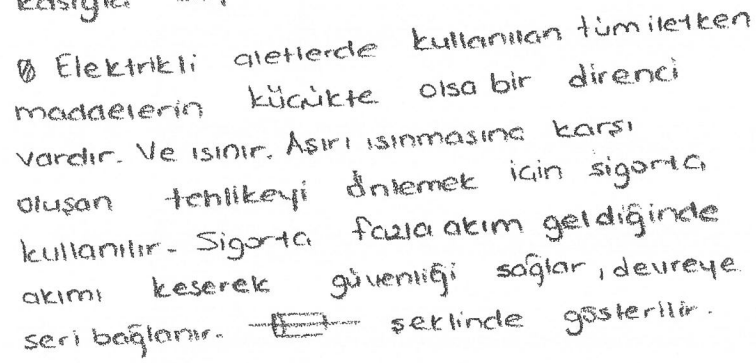 Elektrikli aletlerde kullanılan tüm iletken
maddelerin küçükte olsa bir direnci
vardır. Ve ısınır. Aşırı ısınmasına karşı
oluşan tehlikeyi önlemek için sigorta
kullanılır. Sigorta fazla akım geldiğinde
akımı keserek güvenliği sağlar, devreye
seri bağlanır. şeklinde gösterilir.